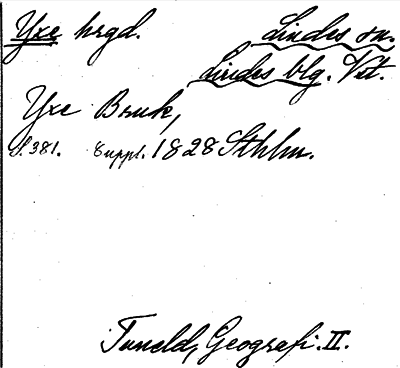 Yxe hrgd. Lindes sn.
Lindes blg. Vst.
Yxe Bruk,
S. 381. Suppl. 1828 Sthlm.
Tuneld, Geografi. II.